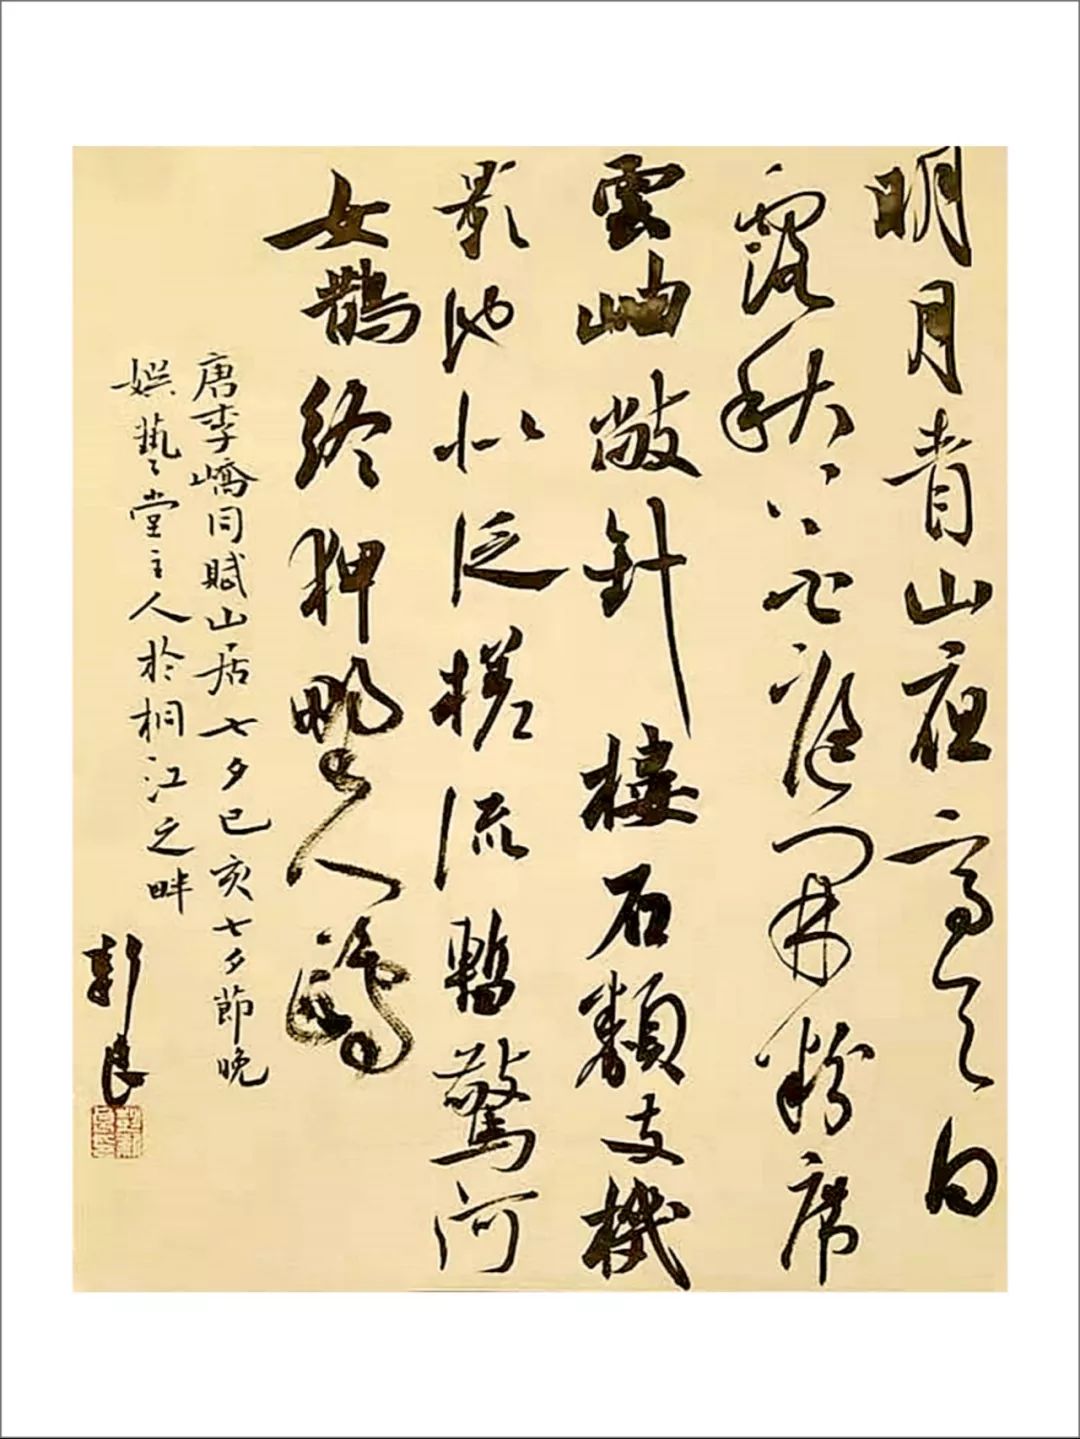 明月青山夜高天白
露秋花庭開粉席
雲岫敞針樓石類支機
影池似泛槎流暫驚河
女鵲終狎野人鷗
唐李嶠同賦山居七夕己亥七夕節晚
娛藝堂主人於桐江之畔